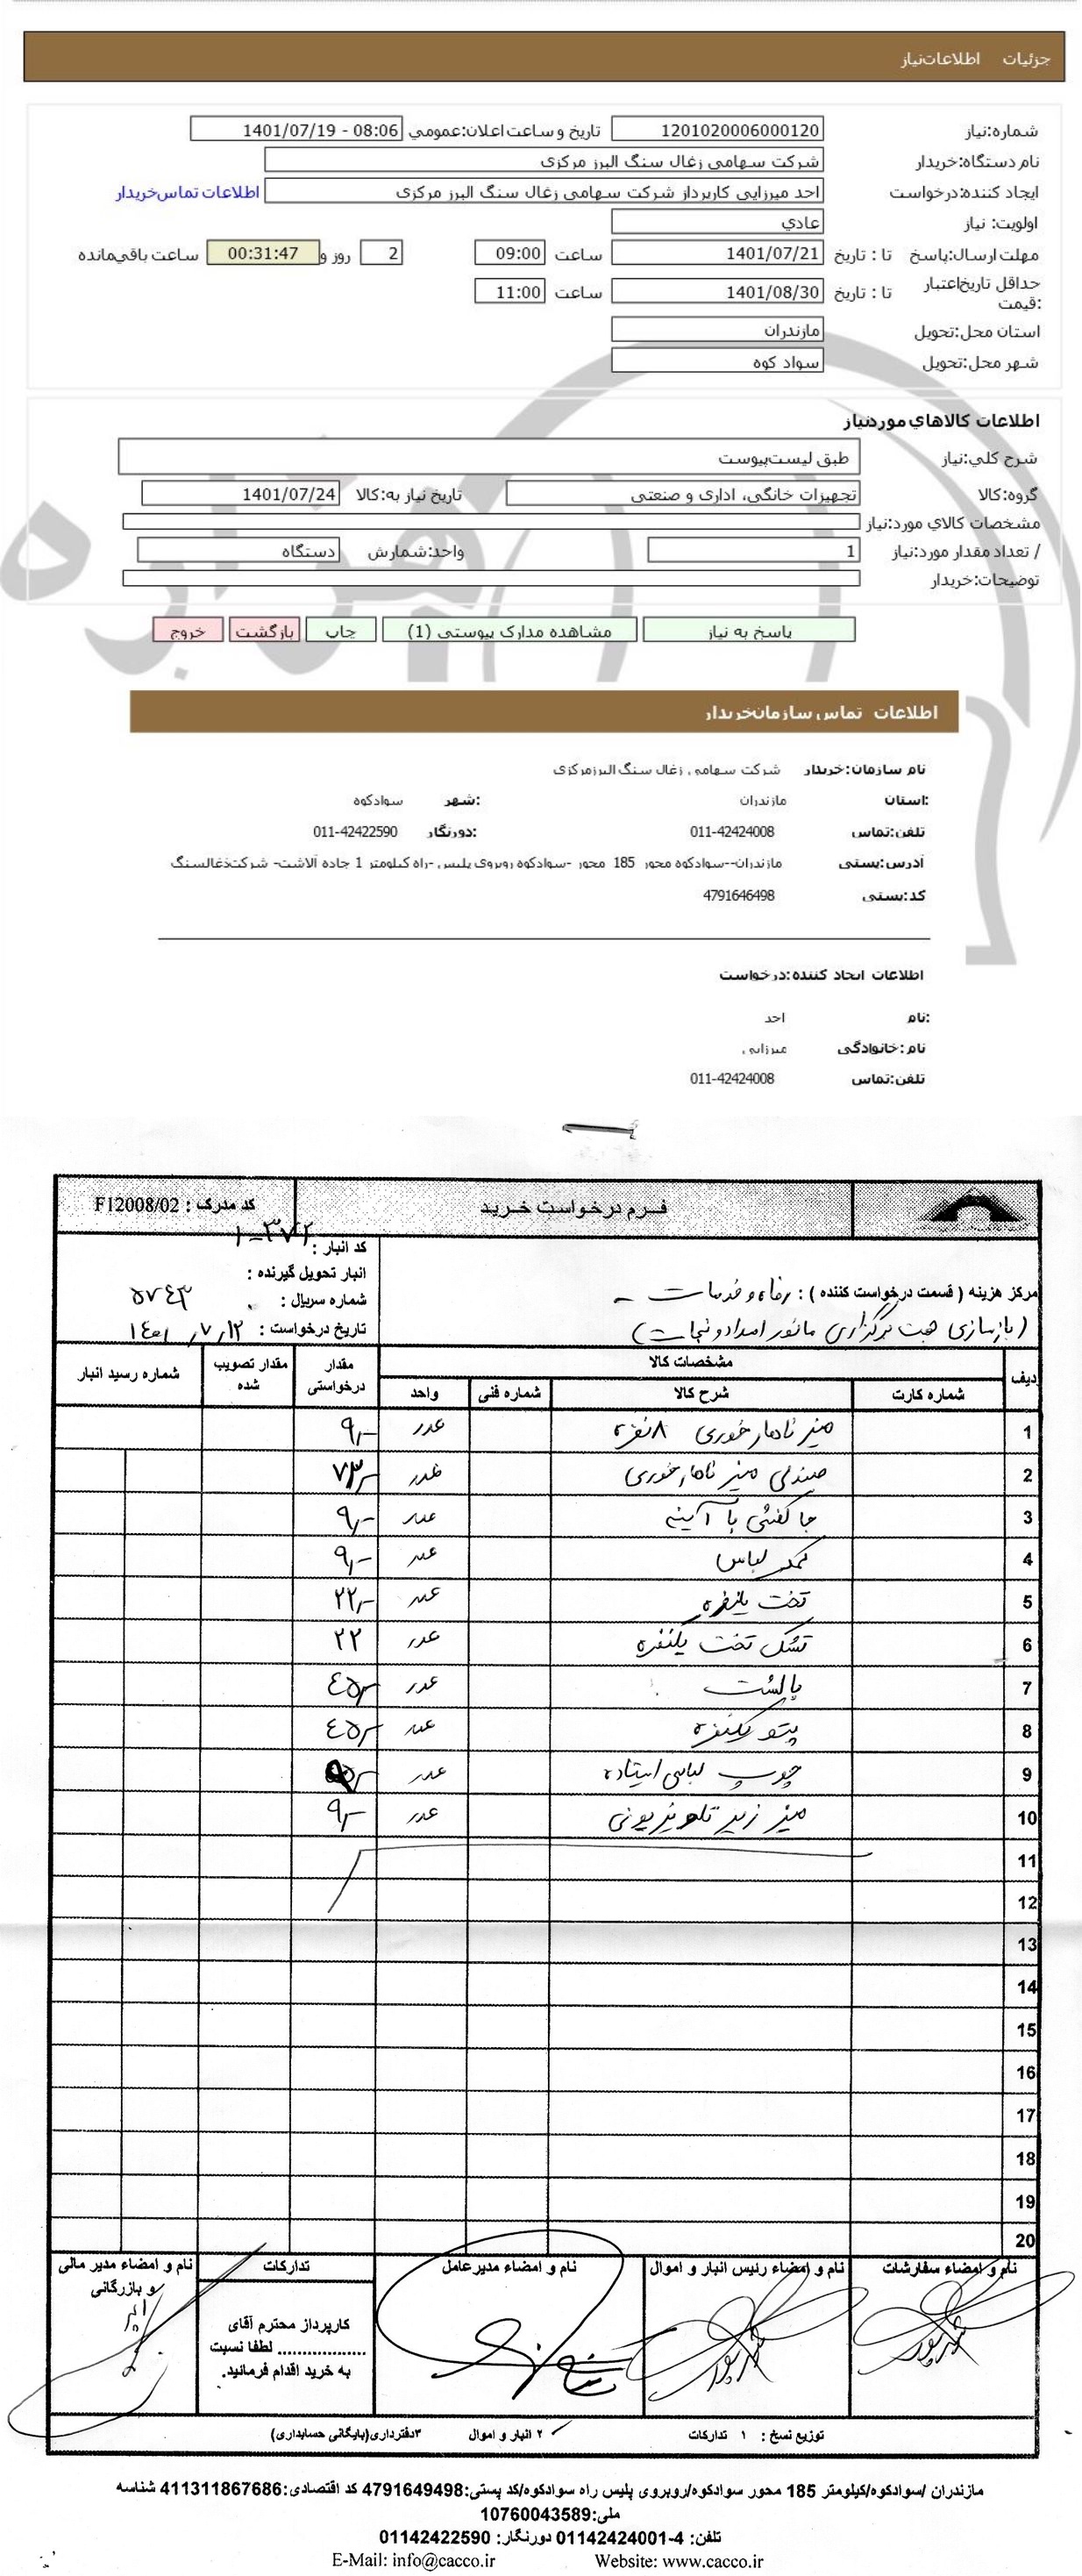 جزئیات اطلاعات نیاز
شماره نیاز: 1201020006000120 تاریخ و ساعت اعلان عمومي: 08:06 - 1401/07/19
نام دستگاه خریدار: شرکت سهامی زغال سنگ البرز مرکزی
ایجاد کننده درخواست: احد میرزایی کارپرداز شرکت سهامی زغال سنگ البرز مرکزی اطلاعات تماس خریدار
اولویت نیاز : عادي
مهلت ارسال پاسخ: تا تاریخ : 1401/07/21 ساعت 09:00 2 روز و 00:31:47 ساعت باقي‌مانده
حداقل تاریخ اعتبار قیمت: تا تاریخ : 1401/08/30 ساعت 11:00
استان محل تحویل: مازندران
شهر محل تحویل: سواد کوه
اطلاعات کالاهاي مورد نیاز
شرح کلي نیاز: طبق لیست پیوست
گروه کالا: تجهیزات خانگی، اداری و صنعتی تاریخ نیاز به کالا: 1401/07/24
مشخصات کالاي مورد نیاز:
/ تعداد مقدار مورد نیاز: 1 واحد شمارش: دستگاه
توضیحات خریدار:
پاسخ به نیاز مشاهده مدارک پیوستی (1) چاپ بازگشت خروج
اطلاعات تماس سازمان خریدار
نام سازمان خریدار: شرکت سهامی زغال سنگ البرزمرکزی
استان: مازندران شهر: سوادکوه
تلفن تماس: 011-42424008 دورنگار: 011-42422590
آدرس پستی: مازندران--سوادکوه محور 185 محور -سوادکوه روبروی پلیس -راه کیلومتر 1 جاده آلاشت- شرکت‌ذغالسنگ
کد پستی: 4791646498
اطلاعات ایجاد کننده درخواست:
نام: احد
نام خانوادگی: میرزایی
تلفن تماس: 011-42424008
فـرم درخواست خـریـد کد مدرک : F12008/02
کد انبار :
انبار تحویل گیرنده :
مرکز هزینه ( قسمت درخواست کننده ) : رفاه و خدمات - شماره سریال : ۵۷۴۳
(بازسازی جهت برگزاری مانور امداد و نجات) تاریخ درخواست : ۱۴۰۱,۷,۱۲
ردیف مشخصات کالا مقدار درخواستی مقدار تصویب شده شماره رسید انبار
شماره کارت شرح کالا شماره فنی واحد
1 میز ناهارخوری ۸ نفره عدد ۹,-
2 صندلی میز ناهارخوری عدد ۷۳,-
3 جا کفشی با آینه عدد ۹,-
4 کمد لباس عدد ۹,-
5 تخت یکنفره عدد ۲۲,-
6 تشک تخت یکنفره عدد ۲۲
7 بالشت عدد ۴۵,-
8 پتو یکنفره عدد ۴۵,-
9 چوب لباسی ایستاده عدد
10 میز زیر تلویزیونی عدد ۹,-
11
12
13
14
15
16
17
18
19
20
نام و امضاء سفارشات نام و امضاء رئیس انبار و اموال نام و امضاء مدیرعامل تدارکات نام و امضاء مدیر مالی و بازرگانی
کارپرداز محترم آقای
.................. لطفا نسبت
به خرید اقدام فرمائید.
توزیع نسخ : ۱ تدارکات ۲ انبار و اموال ۳دفترداری(بایگانی حسابداری)
مازندران /سوادکوه/کیلومتر 185 محور سوادکوه/روبروی پلیس راه سوادکوه/کد پستی:4791649498 کد اقتصادی:411311867686 شناسه
ملی:10760043589
تلفن: 4-01142424001 دورنگار: 01142422590
E-Mail: info@cacco.ir Website: www.cacco.ir